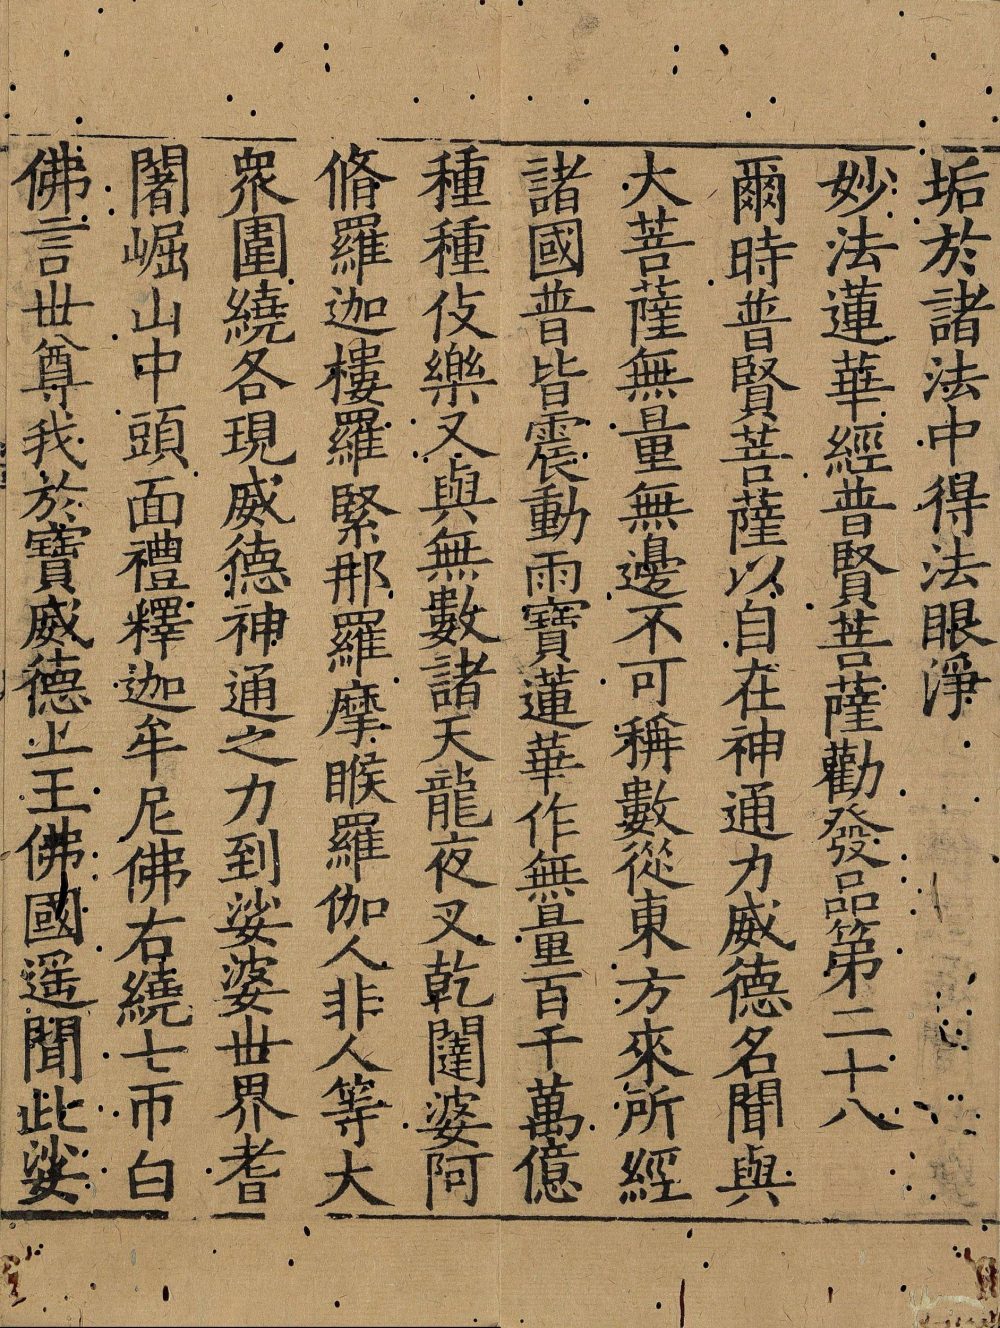 垢於諸法中得法眼淨
妙法蓮華經普賢菩薩勸發品第二十八
爾時普賢菩薩以自在神通力威德名聞與
大菩薩無量無邊不可稱數從東方來所經
諸國普皆震動雨寶蓮華作無量百千萬億
種種伎樂又與無數諸天龍夜叉乾闥婆阿
脩羅迦樓羅緊那羅摩睺羅伽人非人等大
衆圍繞各現威德神通之力到娑婆世界耆
闍崛山中頭面禮釋迦牟尼佛右繞七帀白
佛言世尊我於寶威德上王佛國遥聞此娑